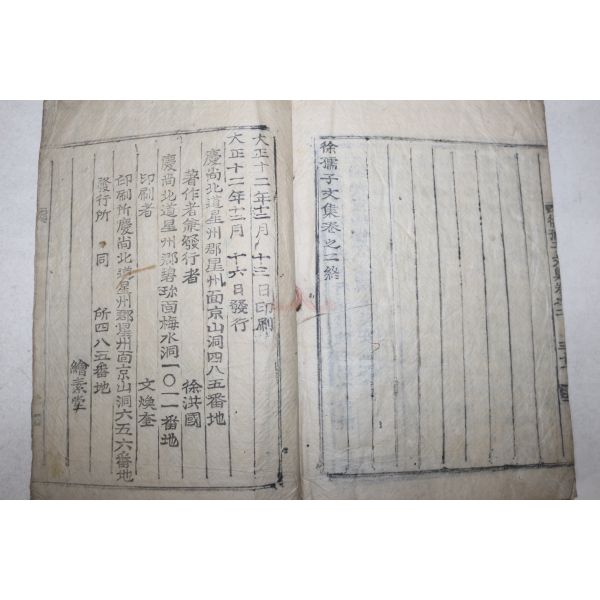 徐孺子文集卷之二終
大正十二年十二月十三日印刷
大正十二年十二月十六日發行
慶尚北道星州郡星州面京山洞四八五番地
著作者兼發行者 徐洪國
慶尚北道星州郡碧珍面梅水洞一〇一一番地
印刷者 文煥奎
印刷所慶尚北道星州郡星州面京山洞六五六番地
發行所 同 所四八五番地
繪素堂